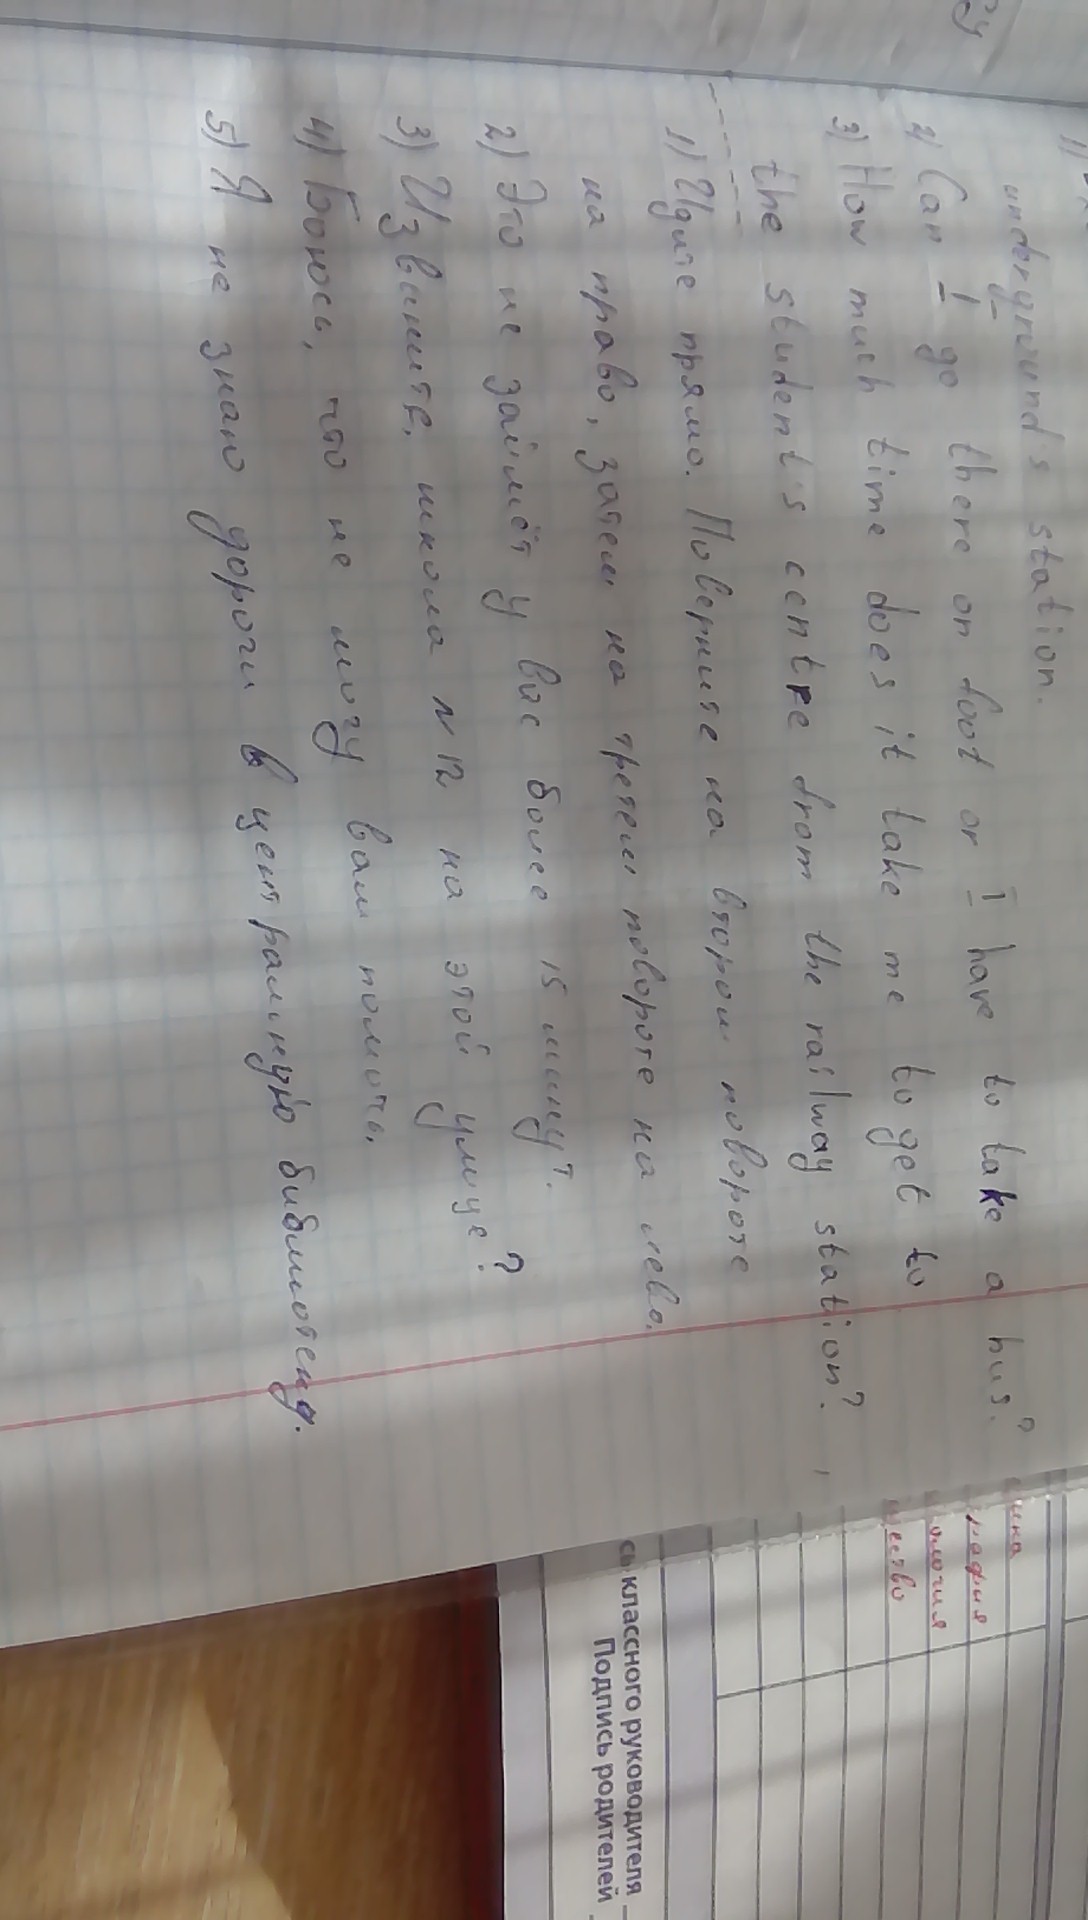 underground's station.
2) Can I go there on foot or I have to take a bus?
3) How much time does it take me to get to
the student's centre from the railway station?
1) Идите прямо. Поверните на втором повороте
на право, затем на третем повороте на лево.
2) Это не займёт у вас более 15 минут.
3) Извините, школа N 12, на этой улице?
4) Боюсь, что не могу вам помочь.
5) Я не знаю дороги в центральную библиотеку.
классного руководителя
Подпись родителей